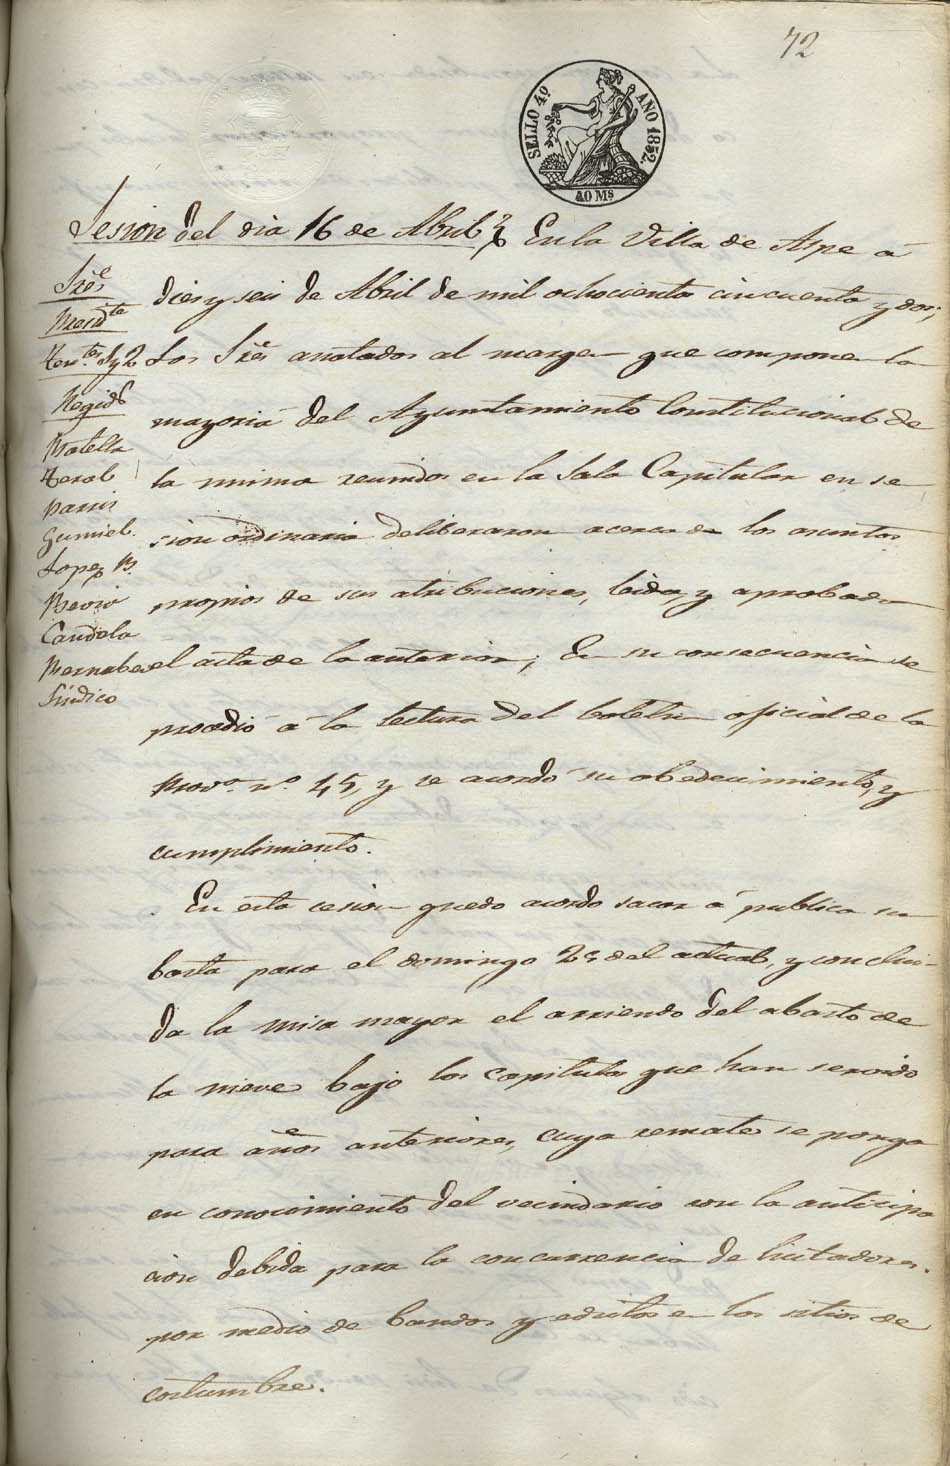 72
SELLO 4º AÑO 1852.
40 Ms
Sesion del dia 16 de Abril En la Villa de Aspe á
dies y seis de Abril de mil ochocientos cincuenta y dos;
los Sres anotados al margen que componen la
mayoria del Ayuntamiento Constitucional de
la misma reunidos en la Sala Capitular en se
sion ordinaria deliberaron acerca de los asuntos
propios de sus atribuciones, leida, y aprobada
el acta de la anterior; En su consecuencia se
procedió á la lectura del boletin oficial de la
Prova. nº 45, y se acordó su obedecimiento, y
cumplimiento.
En esta cesion quedo acordo sacar á publica su
basta para el domingo 25 del actual, y conclui-
da la misa mayor el arriendo del abasto de
la nieve bajo los capitulos que han servido
para años anteriores, cuyo remate se ponga
en conocimiento del vecindario con la anticipa
cion debida para la concurrencia de licitadores.
por medio de bandos y edictos en los sitios de
costumbre.
Sres
Presidte
Tents. 1 y 2
Regids
Botella
Terol
Pavia
Gumiel.
Lopez B.
Candela
Bernabeu
Síndico